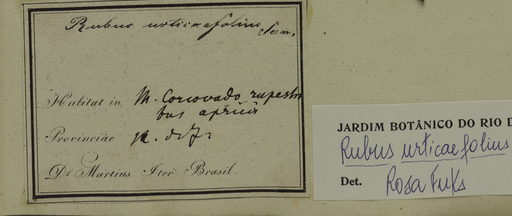 Rubus urticaefolius
Habitat in M. Corcovado rupestri
bus apricis
Provinciae R. d. J.
Dr Martius Iter Brasil.
JARDIM BOTÂNICO DO RIO D
Rubus urticaefolius
Det. Rosa Fuks